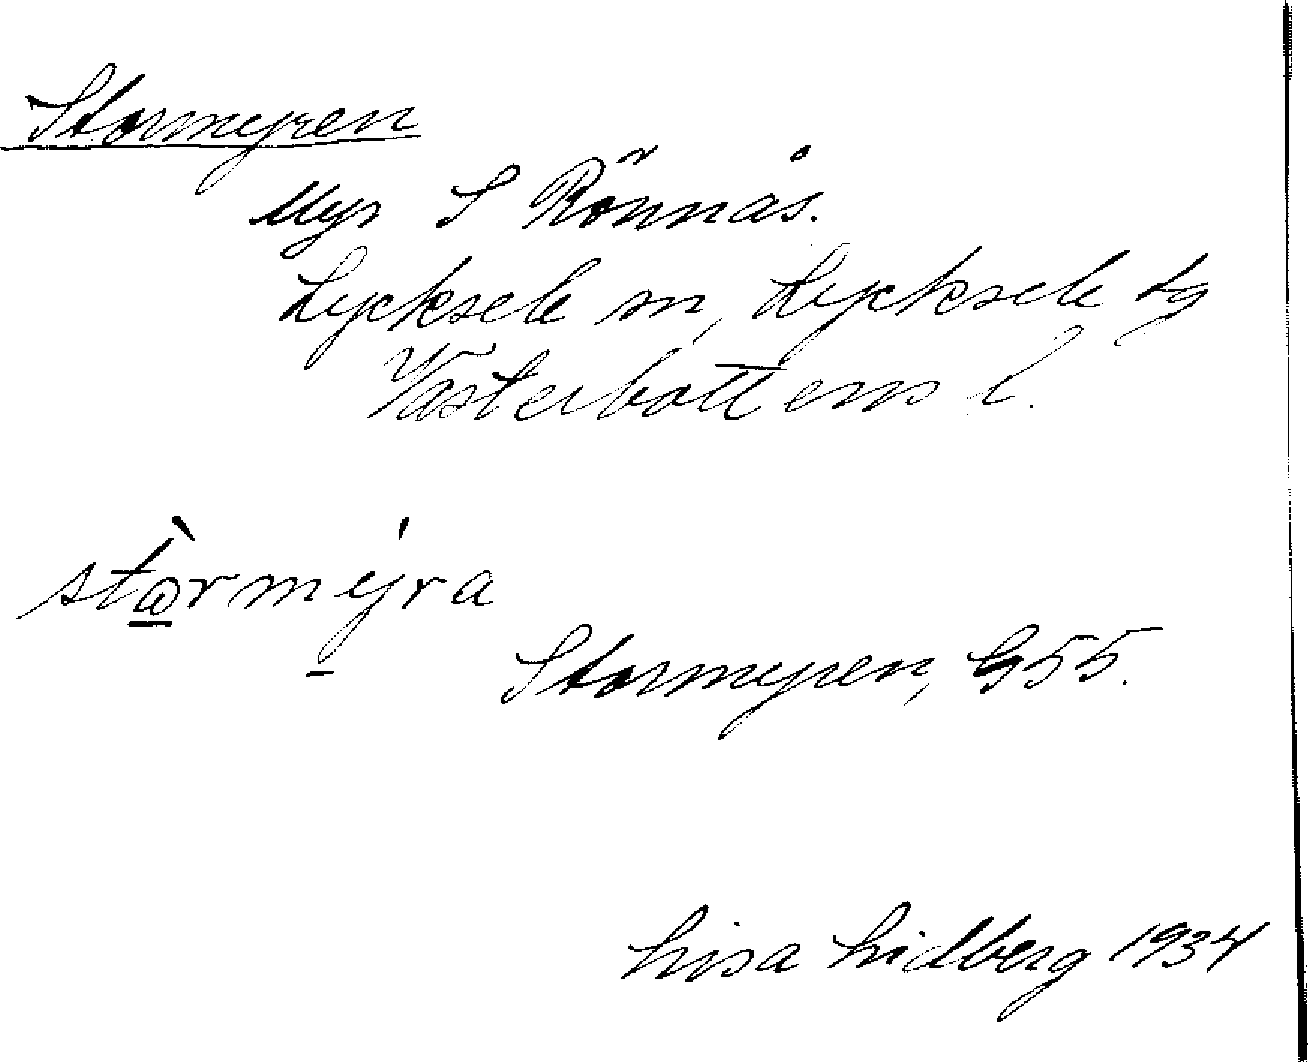 Stormyren
Myr S Rönnås.
Lycksele sn, Lycksele tg
Västerbottens l.
stòrmýra
Stormyren, G55.
Lisa Lidberg 1934